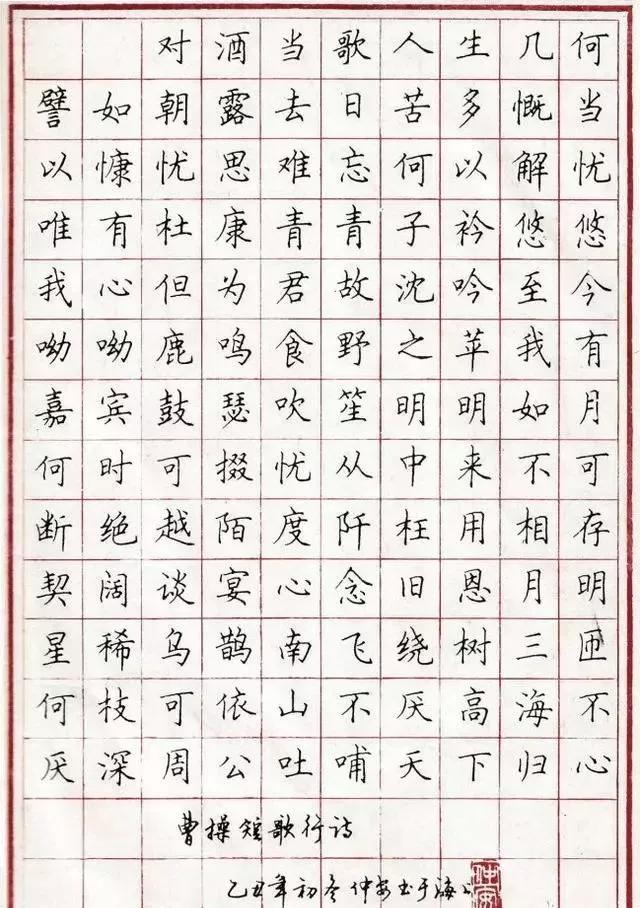 对酒当歌人生几何
譬如朝露去日苦多慨当
以慷忧思难忘何以解忧
唯有杜康青青子衿悠悠
我心但为君故沈吟至今
呦呦鹿鸣食野之苹我有
嘉宾鼓瑟吹笙明明如月
何时可掇忧从中来不可
断绝越陌度阡枉用相存
契阔谈宴心念旧恩月明
星稀乌鹊南飞绕树三匝
何枝可依山不厌高海不
厌深周公吐哺天下归心
曹操短歌行诗
乙丑年初冬仲安书于海上